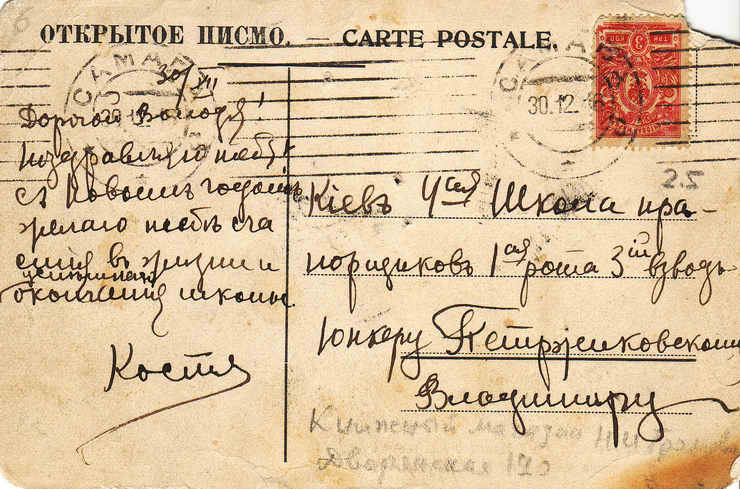 ОТКРЫТОЕ ПИСМО. — CARTE POSTALE.
САМАРА
30.12.16
30/XII
Дорогой Володя!
Поздравляю тебя
съ Новымъ годомъ
желаю тебѣ сча
стія въ жизни и
успѣшнаго
окончанія школы
Костя
25
Кіевъ 4ая Школа пра-
порщиковъ 1ая рота 3ій взводъ
Юнкеру Петржиковскому
Владиміру
Книжный магазин
Дворянская